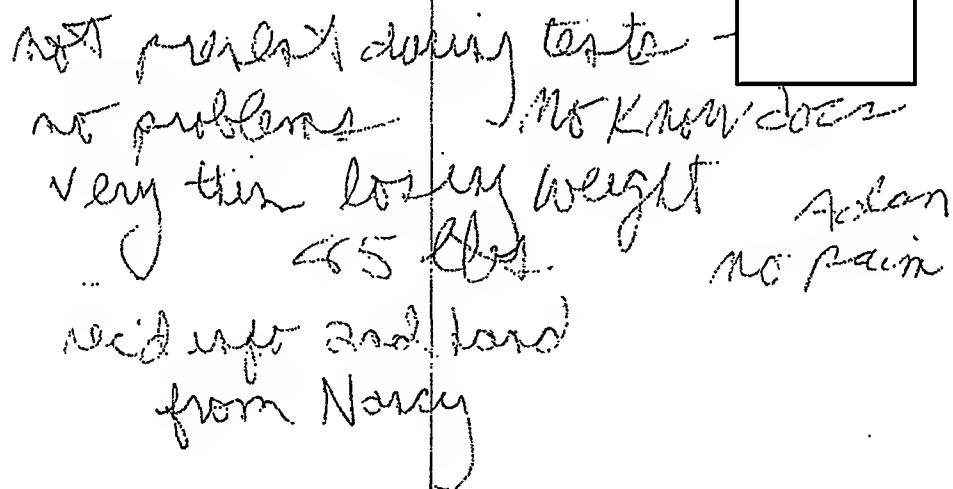 not present during tests -
no problems No know docs
very thin losing weight
65 lbs. no pain
rec'd info 2nd hand
from Nancy